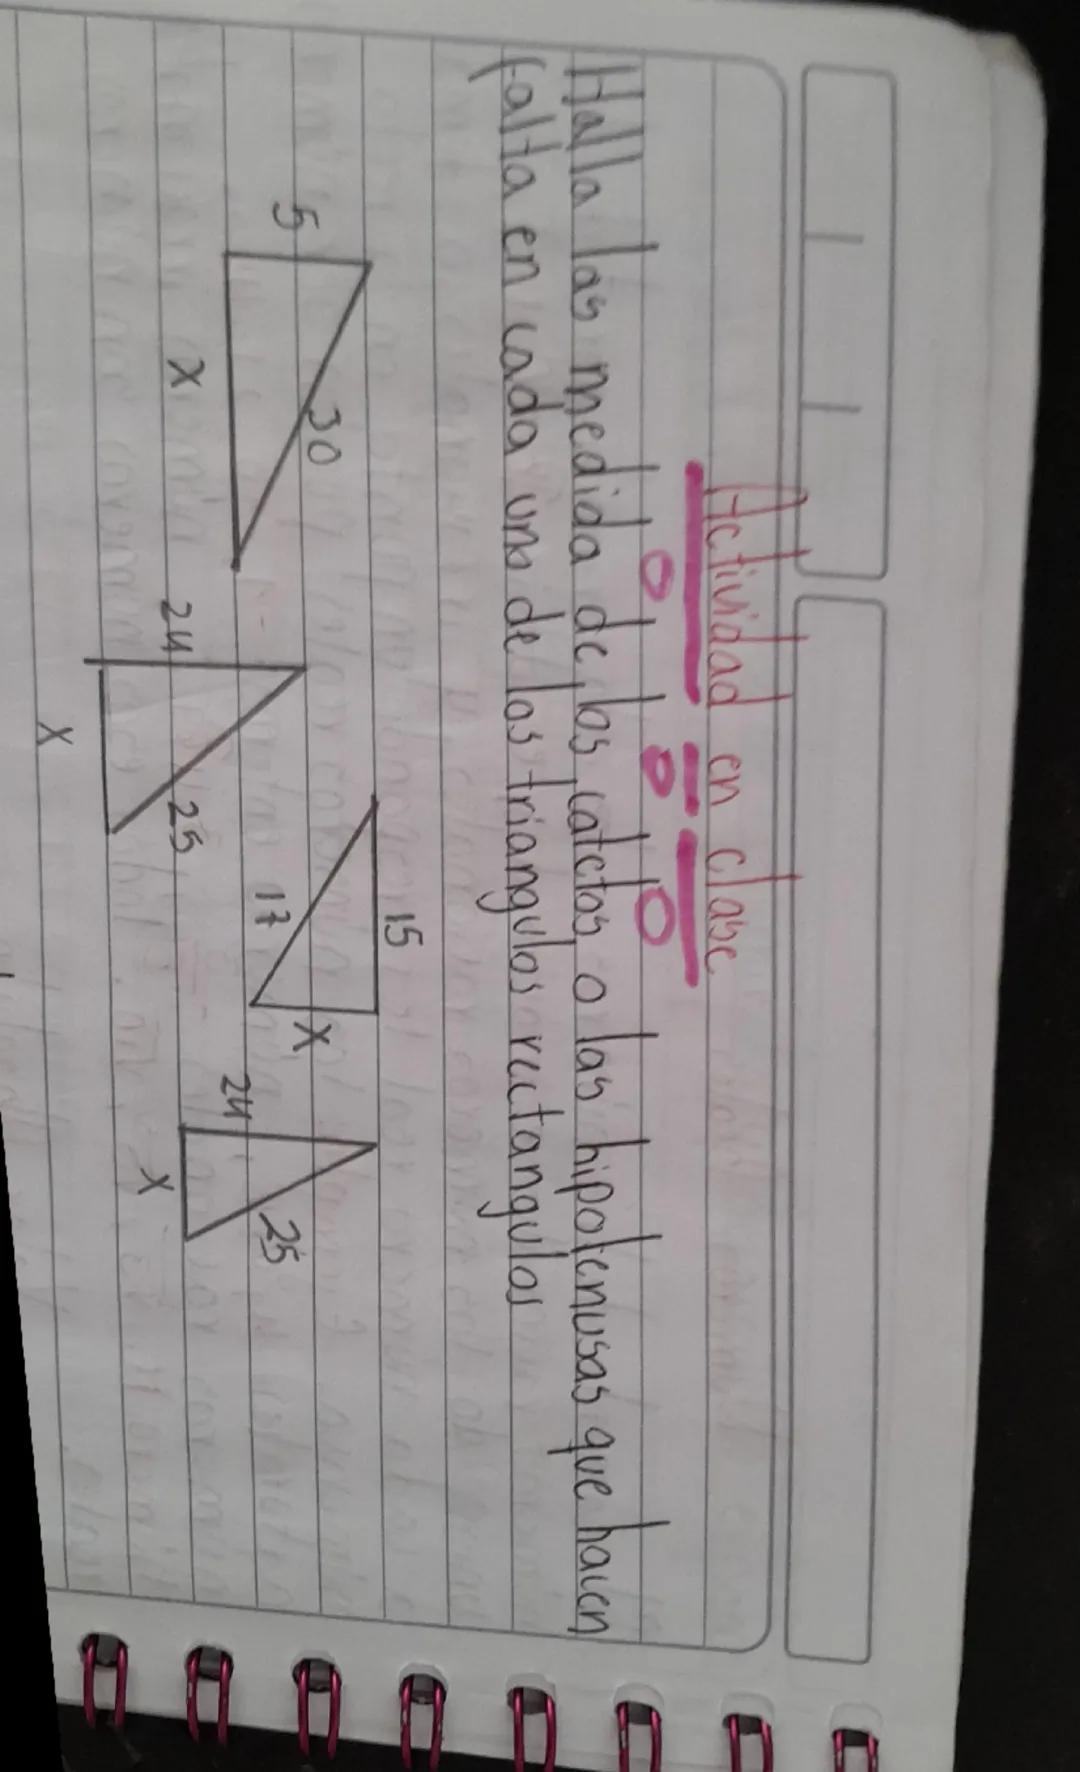 Actividad en clase
Halla las medida de los catetos o las hipotenusas que hacen
falta en cada uno de los triangulos rectangulos
5
30
x
24
25
x
15
17
x
24
25
x